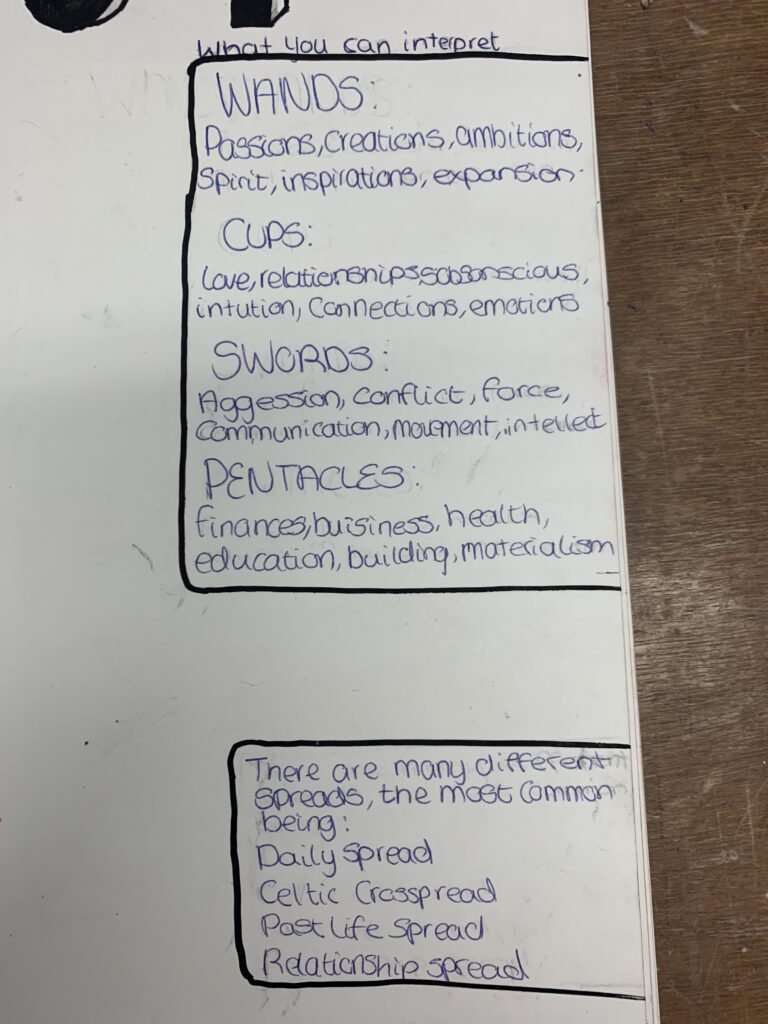 What you can interpret
WANDS:
Passions, Creations, ambitions,
Spirit, inspirations, expansion.
CUPS:
love, relationships, subsonscious,
intution, Connections, emotions
SWORDS:
Aggession, Conflict, force,
Communication, movement, intellect
PENTACLES:
finances, buisiness, health,
education, building, materialism
There are many different
spreads, the most Common
being:
Daily spread
Celtic Crosspread
Past life spread
Relationship spread